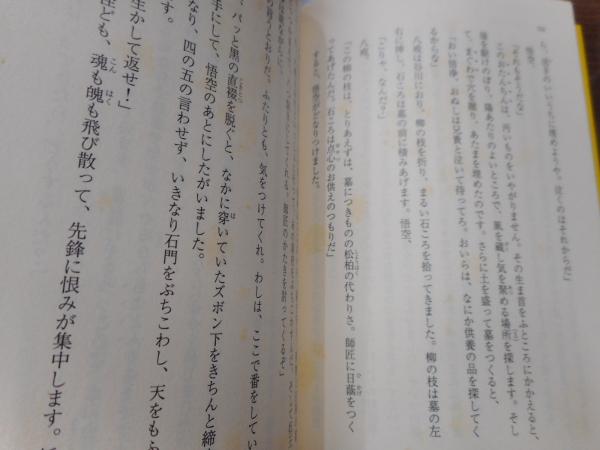 ら、泣きのいいうちに埋めようや。泣くのはそれからだ」
悟空、
「それもそうだな」
このおたんちんは、汚いものをいやがりません。その生ま首をふところにかかえると、
崖を駆けのぼり、陽あたりのよいところで、風を蔵し気を聚める場所を探します。そし
て、まぐわで穴を掘り、あたまを埋めたのです。さらに土を盛って墓をつくると、
「おい悟浄、おぬしは兄貴と泣いて待ってろ。おいらは、なにか供養の品を探してく
るからな」
八戒は谷川におり、柳の枝を折り、まるい石ころを拾ってきました。柳の枝は墓の左
右に挿し、石ころは墓の前に積みあげます。悟空、
「こりゃ、なんだ？」
八戒、
「この柳の枝は、とりあえずは、墓につきものの松柏の代わりさ。師匠に日蔭をつく
ってあげたんだ。石ころは点心のお供えのつもりだ」
すると、悟空がどなりつけました。
師匠のかたきを討ってくるぞ」
とおりだ。ふたりとも、気をつけてくれ。わしは、ここで番をしてい
、パッと黒の直裰を脱ぐと、なかに穿いていたズボン下をきちんと締
手にして、悟空のあとにしたがいました。
なり、四の五の言わせず、いきなり石門をぶちこわし、天をも
す。
生かして返せ！」
ども、魂も魄も飛び散って、先鋒に恨みが集中します。